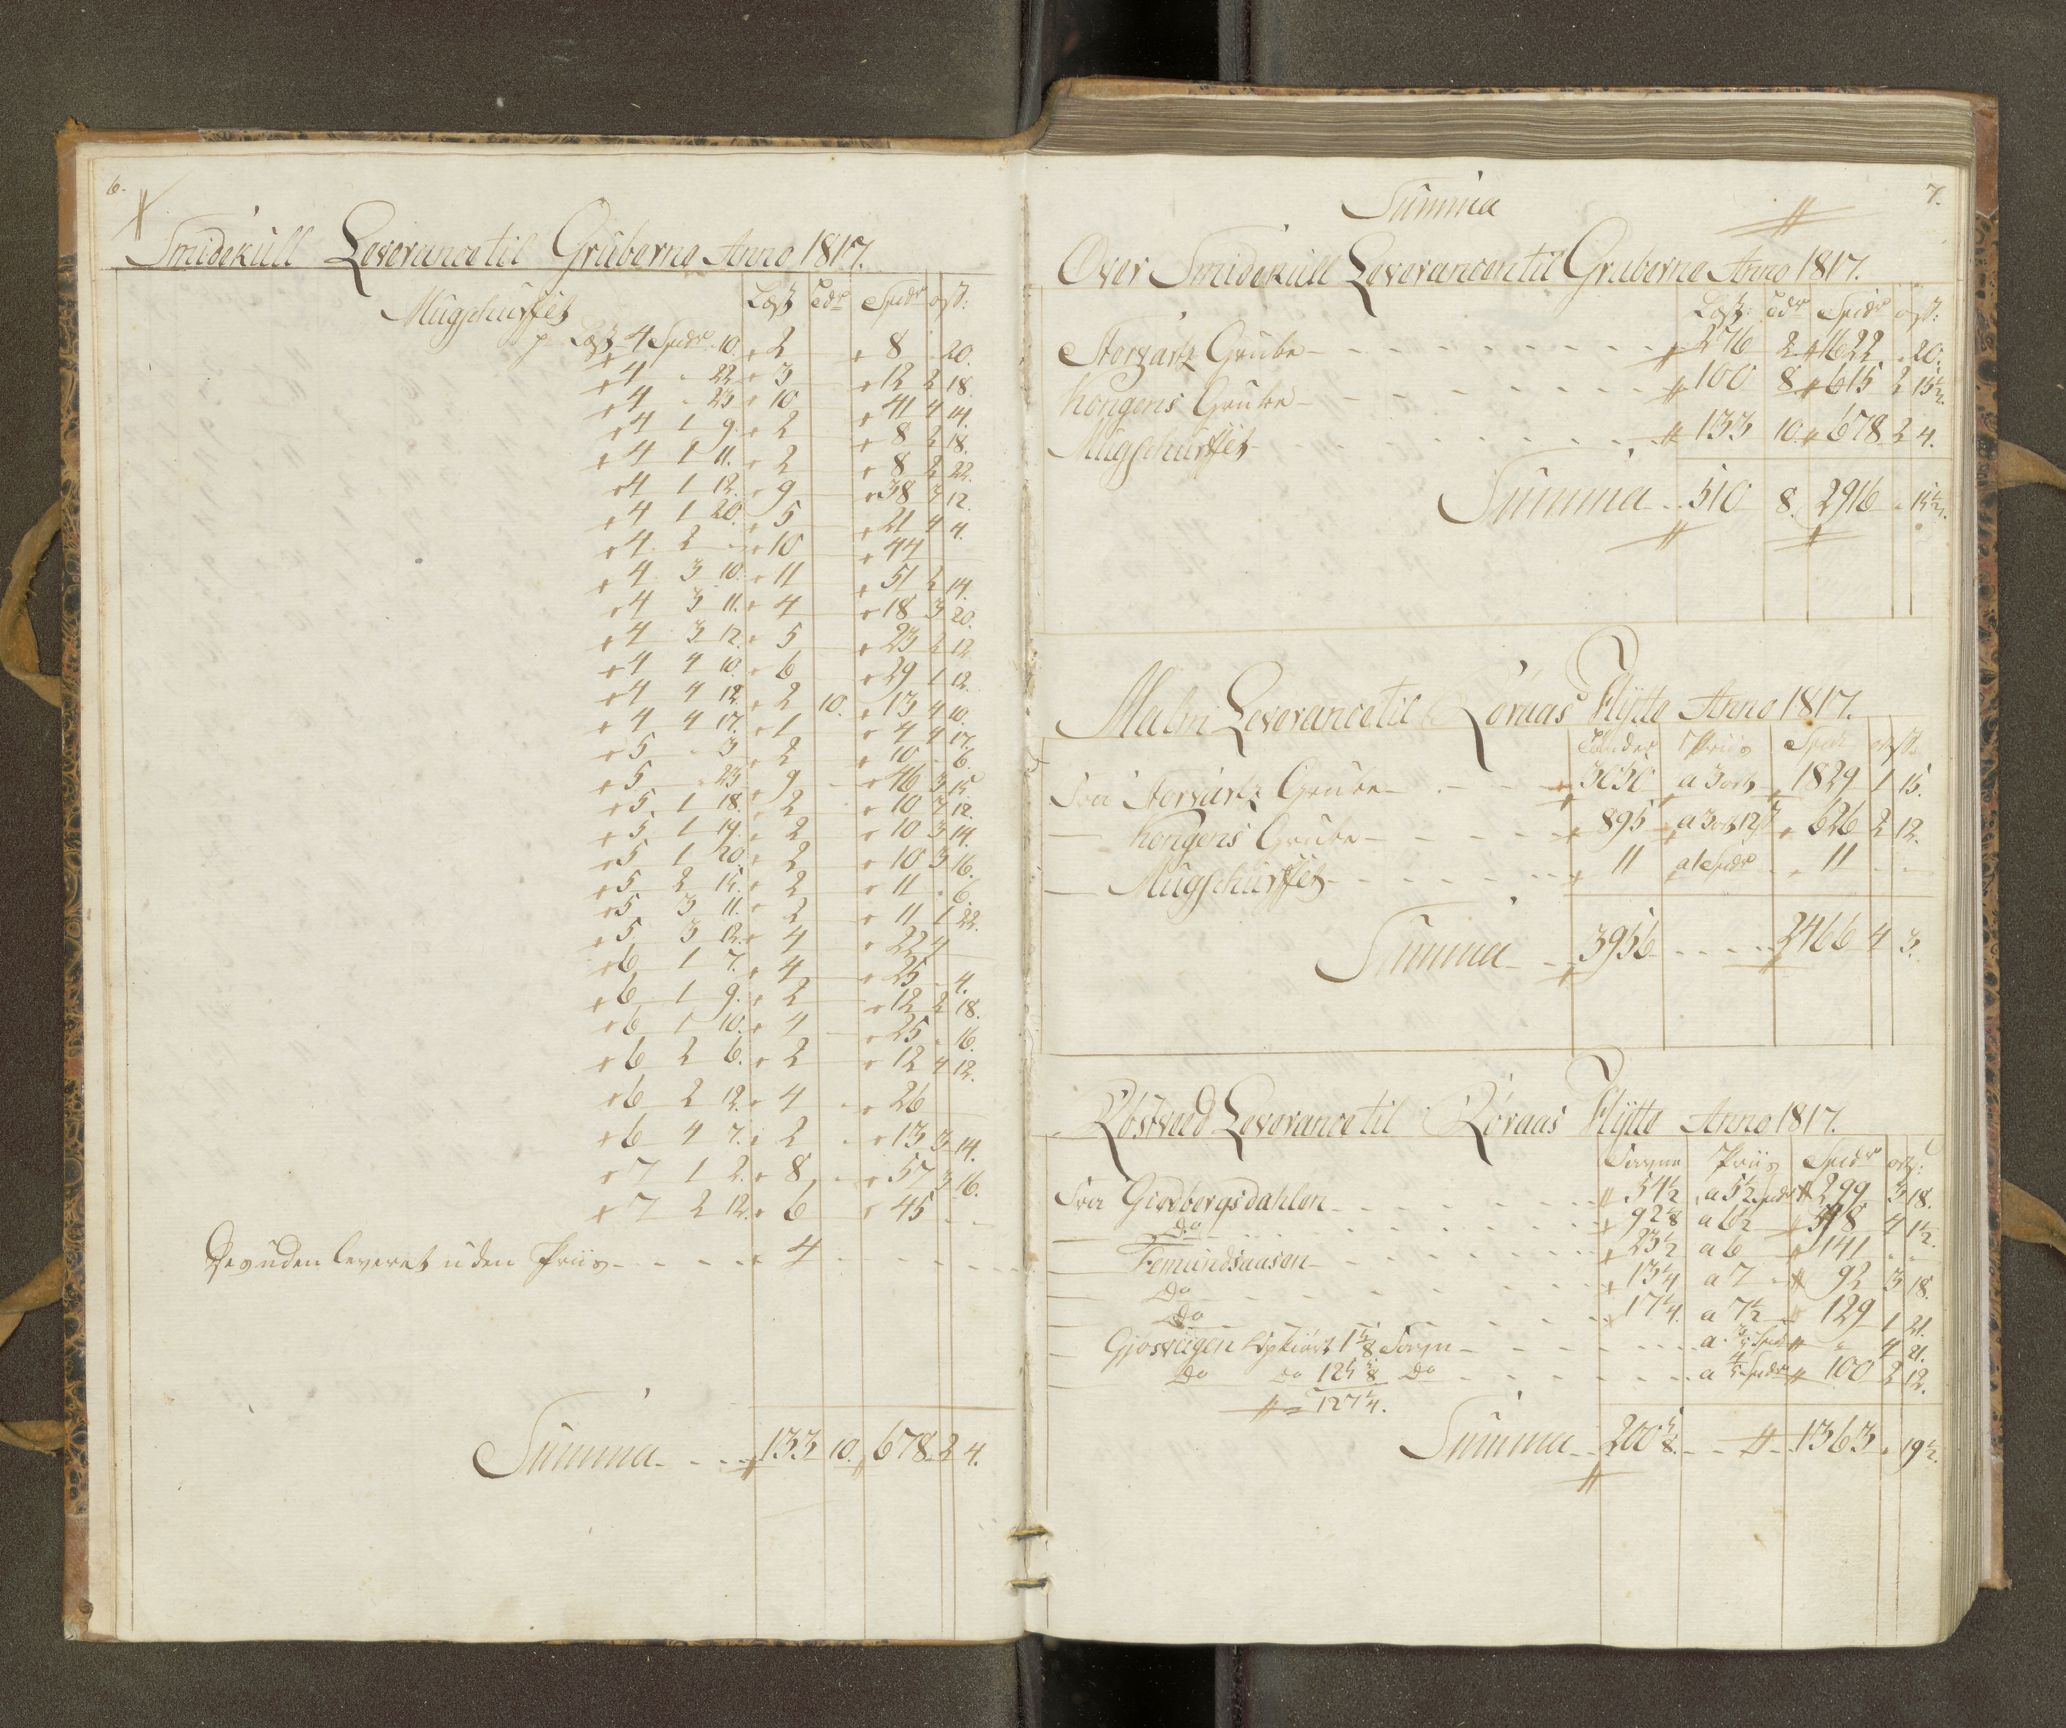 6.
Smidekull Leverance til Gruberne Anno 1817.
Mugghusset Læst Tdr Spdr ort ß:
pr Læst 4 Spdr „ 10. „ 2 „ 8 „ 20.
„ 4 „ 22 „ 3 „ 12 2 18.
„ 4 „ 23 „ 10 „ 41 4 14.
„ 4 1 9. „ 2 „ 8 2 18.
„ 4 1 11. „ 2 „ 8 2 22.
„ 4 1 12. „ 9 „ 38 3 12.
„ 4 1 20. „ 5 „ 21 4 4.
„ 4 2 „ „ 10 „ 44
„ 4 3 10. „ 11 „ 51 2 14.
„ 4 3 11. „ 4 „ 18 3 20.
„ 4 3 12. „ 5 „ 23 2 12
„ 4 4 10. „ 6 „ 29 1 12.
„ 4 4 12. „ 2 10. „ 13 4 10.
„ 4 4 17. „ 1 „ 4 4 17.
„ 5 „ 3 „ 2 „ 10 „ 6.
„ 5 „ 23. „ 9 „ 46 3 15
„ 5 1 18. „ 2 „ 10 3 12.
„ 5 1 19. „ 2 „ 10 3 14.
„ 5 1 20. „ 2 „ 10 3 16.
„ 5 2 15. „ 2 „ 11 „ 6.
„ 5 3 11. „ 2 „ 11 1 22.
„ 5 3 12. „ 4 „ 22 4
„ 6 1 7. „ 4 „ 25 „ 4.
„ 6 1 9. „ 2 „ 12 2 18.
„ 6 1 10. „ 4 „ 25 „ 16.
„ 6 2 6. „ 2 „ 12 4 12.
„ 6 2 12. „ 4 „ 26
„ 6 4 7. „ 2 „ 13 3 14.
„ 7 1 2. „ 8 „ 57 3 16.
„ 7 2 12. „ 6 „ 45
Desuden leveret uden Priis „ 4
Summa 133 10. 678 2 4.
7.
Summa
Over Smidekull Leverancen til Gruberne Anno 1817.
Læst: Tdr Spdr ort ß:
Storvartz Grube 276 2 1622 „ 20.
Kongens Grube 100 8 615 2 15½.
Mugghusset 133 10 678 2 4.
Summa 510 8. 2916 „ 15½.
Malm Leverance til Røraas Hytte Anno 1817.
Tønder Priis Spdr ort ß
Fra Storvartz Grube 3050 a 3 ort „ 1829 1 15.
Kongens Grube „ 895 a 3 ort 12 ß „ 626 2 12.
Mugghusset „ 11 a 1 Spdr „ 11
Summa 3956 2466 4 3.
Røstved Leverance til Røraas Hytte Anno 1817.
Favne Priis Spdr ort ß:
Fra Giedbergsdahlen 54½ a 5½ Spdr 299 3 18.
Do a 6½ 4 1½.
Femundsaasen 23½ a 6 141
Do 13¼ a 7 92 3 18.
Do 17¼ a 7½ 129 1 21.
Gjosviigen Favn 4 21.
Do Do Do 100 2 12.
127¼.
Summa 1363 „ 19½.